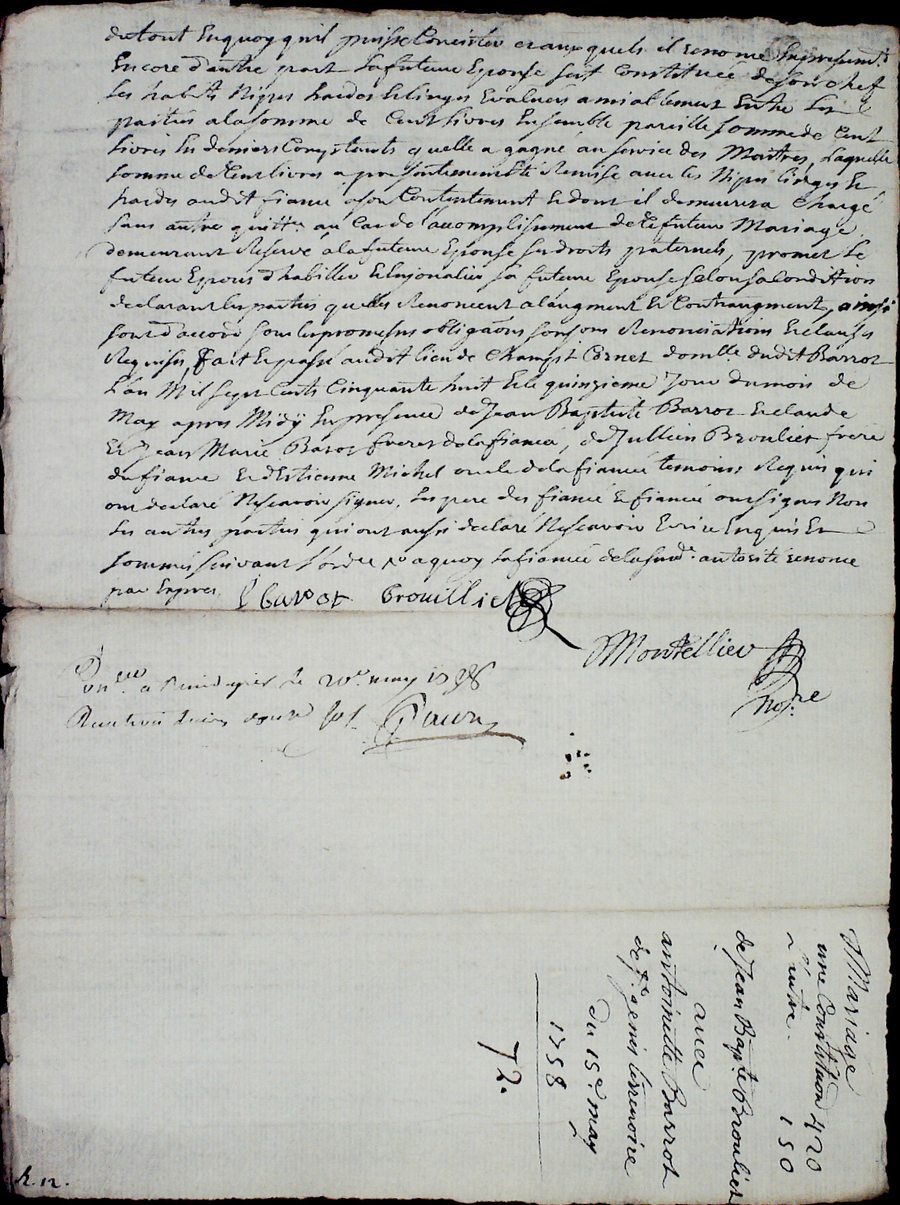 du tout en quoy qu'il puisse consister et auxquels il renonce
Encore d'autre part la future Epouse sest Constituée de son chef
ses habits Nipes hardes et linges Evalués amiablement Entre les
parties a la somme de Cent livres Ensemble pareille somme de Cent
livres En deniers Comptants quelle a gagné au service des Maitres, Laquelle
somme de Cent livres a presentement Eté Remise avec les Nipes linges Et
hardes audit fiancé a son Contentement Et dont il demeurera Chargé
sans autre quittce au Cas de l'accomplissement de Ce futur Mariage
demeurant Reservé a la future Epouse ses droits paternels, promet le
futur Epoux d'habiller Et Enjoualier sa future Epouse selon sa Condition
declarant les parties quelles Renoncent a l'augment Et Contraugment, ainsi
sont d'accord sous les promesses obligaons Renonciations Et clauses
Requises, fait Et passé audit lieu de Champt Cornet domlle dudit Barrot
L'an Mil sept Cents Cinquante huit Et le quinzieme Jour du mois de
May apres Midy En presence de Jean Baptiste Barrot Et claude
Et Jean Marie Barot freres de la fiancée, de Jullien Broulier frere
du fiancé Et d'Estienne Michel oncle de la fiancée temoins Requis qui
ont declaré Nescavoir signer, Les pere des fiancé Et fiancée ont signés Non
Les autres parties qui ont aussi declaré Nescavoir Ecrire Enquis Et
sommés suivant l'ordce
par Expres Barot Brouillier
Montellier
nore
a le may 1758
Mariage
une Constituon 420
a autre 150
de Jean Bapte Broulier
avec
antoinette Barrot
de st genis terrenoire
du 15e may
1758
72.
h. 12.